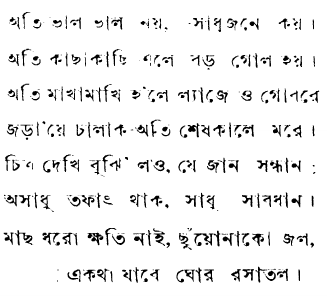 অতি ভাল ভাল নয়, সাধুজনে কয়।
অতি কাছাকাছি এলে বড় গোল হয়।
অতি মাখামাখি হ'লে ল্যাজে ও গোবরে
জড়া'য়ে চালাক-অতি শেষকালে মরে।
চিত্র দেখি বুঝি' লও, যে জান সন্ধান;
অসাধু তফাৎ থাক, সাধু সাবধান।
মাছ ধরো ক্ষতি নাই, ছুঁয়োনাকো জল,
একথা যাবে ঘোর রসাতল।